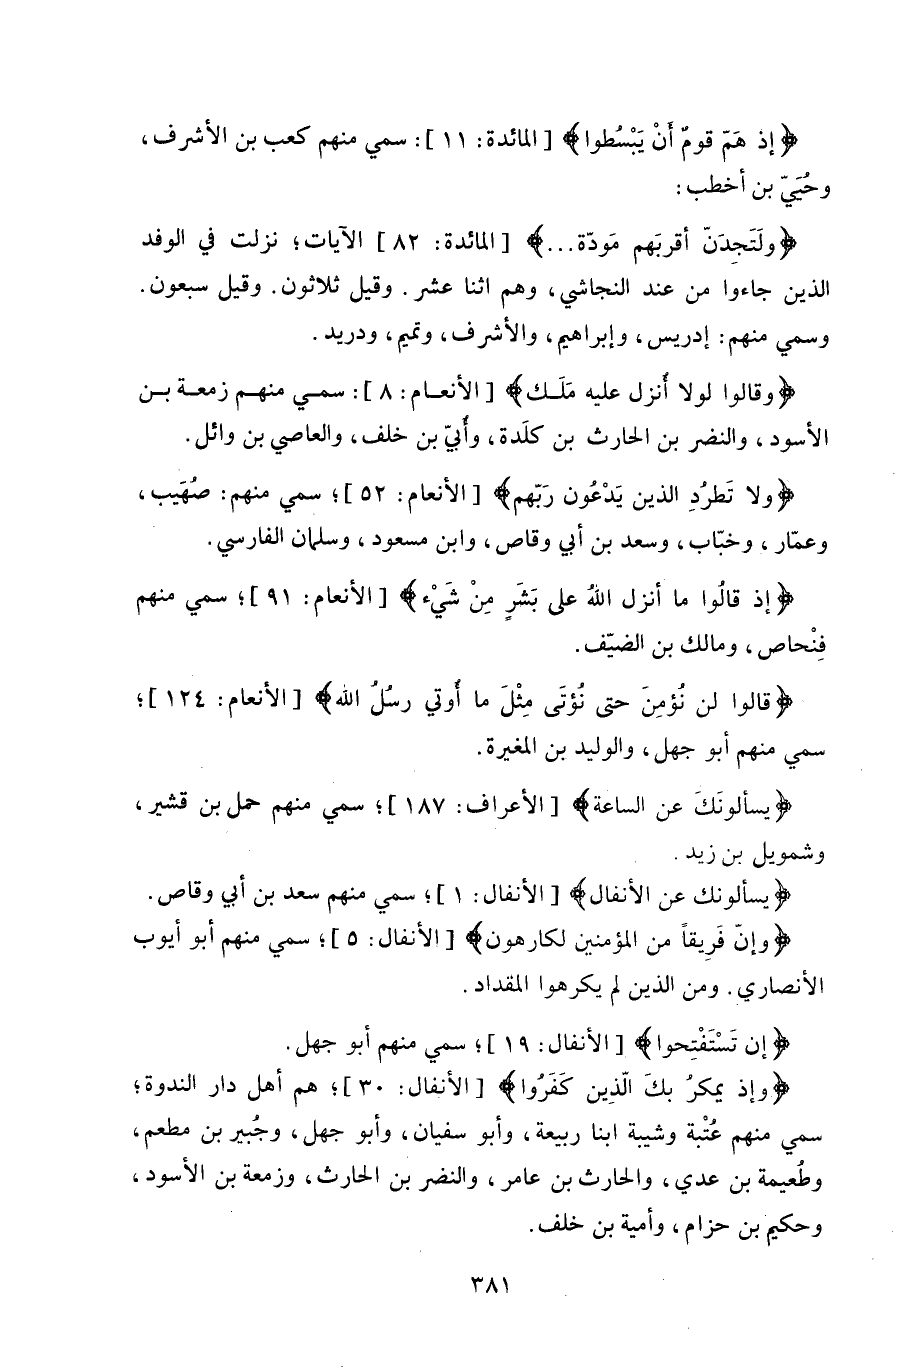 ﴿إذ هَمّ قومٌ أَنْ يَبْسُطوا﴾ [المائدة: ١١]: سمي منهم كعب بن الأشرف،
وحُيَيّ بن أخطب:
﴿ولَتَجِدَنّ أقربَهم مَودّة...﴾ [المائدة: ٨٢] الآيات؛ نزلت في الوفد
الذين جاءوا من عند النجاشي، وهم اثنا عشر. وقيل ثلاثون. وقيل سبعون.
وسمي منهم: إدريس، وإبراهيم، والأشرف، وتميم، ودريد.
﴿وقالوا لولا أُنزل عليه مَلَـك﴾ [الأنعـام: ٨]: سمـي منهـم زمعـة بـن
الأسود، والنضر بن الحارث بن كلَدة، وأُبيّ بن خلف، والعاصي بن وائل.
﴿ولا تَطرُدِ الذين يَدْعُون رَبّهم﴾ [الأنعام: ٥٢]؛ سمي منهم: صُهَيب،
وعمّار، وخبّاب، وسعد بن أبي وقاص، وابن مسعود، وسلمان الفارسي.
﴿إذ قالُوا ما أنزل اللهُ على بَشَرٍ مِنْ شَيْء﴾ [الأنعام: ٩١]؛ سمي منهم
فِنْحاص، ومالك بن الضيّف.
﴿قالوا لن نُؤمِنَ حتى نُؤتَى مِثْلَ ما أُوتي رسُلُ الله﴾ [الأنعام: ١٢٤]؛
سمي منهم أبو جهل، والوليد بن المغيرة.
﴿يسألونَكَ عن الساعة﴾ [الأعراف: ١٨٧]؛ سمي منهم حمل بن قشير،
وشمويل بن زيد.
﴿يسألونك عن الأنفال﴾ [الأنفال: ١]؛ سمي منهم سعد بن أبي وقاص.
﴿وإنّ فَرِيقاً من المؤمنين لكارهون﴾ [الأنفال: ٥]؛ سمي منهم أبو أيوب
الأنصاري. ومن الذين لم يكرهوا المقداد.
﴿إن تَسْتَفْتِحوا﴾ [الأنفال: ١٩]؛ سمي منهم أبو جهل.
﴿وإذ يمكرُ بكَ الّذِين كَفَرُوا﴾ [الأنفال: ٣٠]؛ هم أهل دار الندوة؛
سمي منهم عُتْبة وشيبة ابنا ربيعة، وأبو سفيان، وأبو جهل، وجُبير بن مطعم،
وطُعيمة بن عدي، والحارث بن عامر، والنضر بن الحارث، وزمعة بن الأسود،
وحكيم بن حزام، وأمية بن خلف.
٣٨١